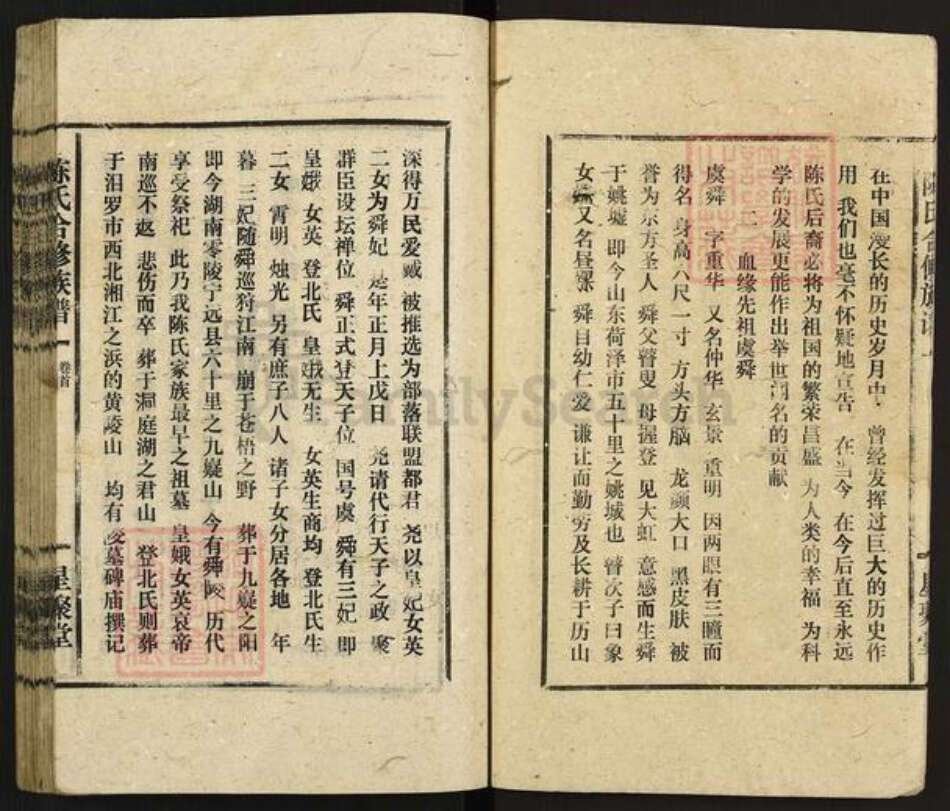 陈氏合修族谱一
星聚堂
在中国漫长的历史岁月中．曾经发挥过巨大的历史作
用 我们也毫不怀疑地宣告 在当今 在今后直至永远
陈氏后裔必将为祖国的繁荣昌盛 为人类的幸福 为科
学的发展更能作出举世闻名的贡献
二 血缘先祖虞舜
虞舜 字重华 又名仲华 玄景 重明 因两眼有三瞳而
得名 身高六尺一寸 方头方脑 龙颜大口 黑皮肤 被
誉为东方圣人 舜父瞽叟 母握登 见大虹 意感而生舜
于姚墟 即今山东荷泽市五十里之姚城也 瞽次子曰象
女 又名 舜自幼仁爱 谦让而勤劳及长耕于历山
深得万民爱戴 被推选为部落联盟都君 尧以皇妃女英
二女为舜妃 是年正月上戊日 尧请代行天子之政 聚
群臣设坛禅位 舜正式登天子位 国号虞 舜有三妃 即
皇娥 女英 登北氏 皇娥无生 女英生商均 登北氏生
二女 霄明 烛光 另有庶子八人 诸子女分居各地 年
暮 三妃随舜巡狩江南 崩于苍梧之野 葬于九嶷之阳
即今湖南零陵宁远县六十里之九嶷山 今有舜陵 历代
享受祭祀 此乃我陈氏家族最早之祖墓 皇娥女英哀帝
南巡不返 悲伤而卒 葬于洞庭湖之君山 登北氏则葬
于汨罗市西北湘江之浜的黄陵山 均有陵墓碑庙撰记
陈氏合修族谱一 卷首
星聚堂
FamilySearch